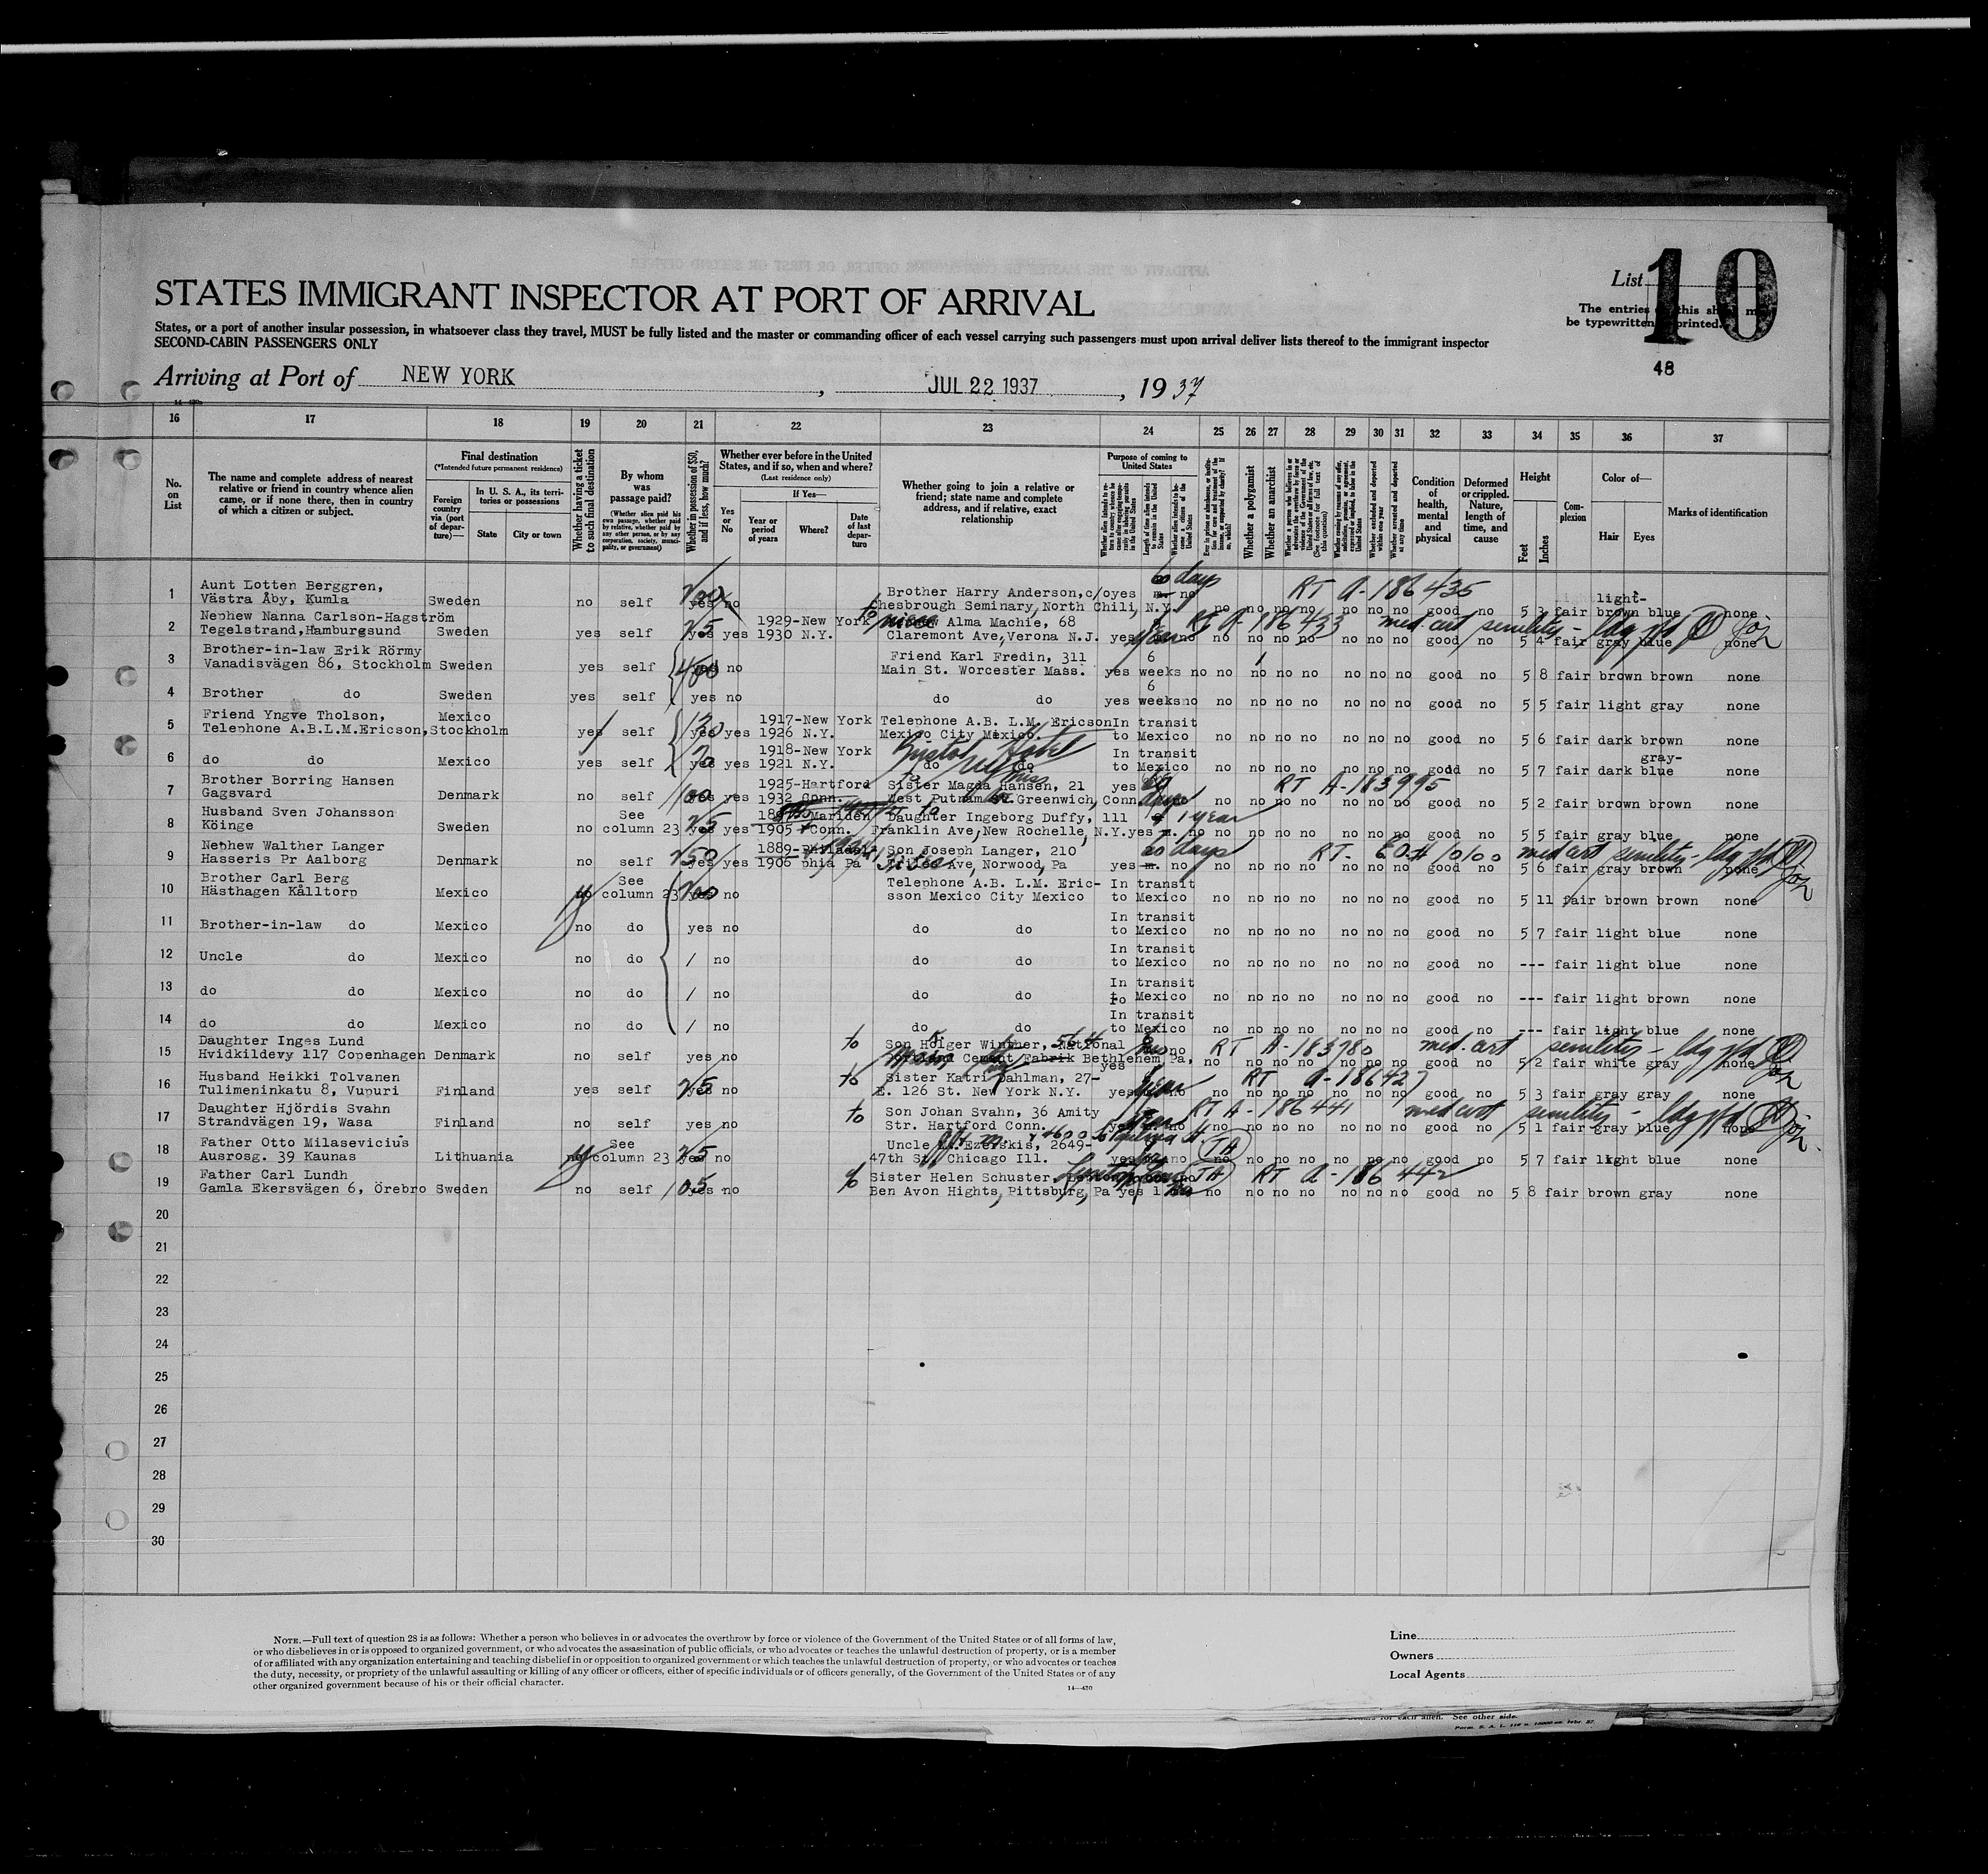 STATES IMMIGRANT INSPECTOR AT PORT OF ARRIVAL
List 10
The entries this
be typewritten printed.
States, or a port of another insular possession, in whatsoever class they travel, MUST be fully listed and the master or commanding officer of each vessel carrying such passengers must upon arrival deliver lists thereof to the immigrant inspector
SECOND-CABIN PASSENGERS ONLY
48
Arriving at Port of NEW YORK, JUL 22 1937, 1937
16 17 18 19 20 21 22 23 24 25 26 27 28 29 30 31 32 33 34 35 36 37
No. on List
The name and complete address of nearest relative or friend in country whence alien came, or if none there, then in country of which a citizen or subject.
Final destination
(*Intended future permanent residence)
Foreign country via (port of departure)—
In U. S. A., its territories or possessions
State
City or town
Whether having a ticket to such final destination
By whom was passage paid?
(Whether alien paid his own passage, whether paid by relative, whether paid by any other person, or by any corporation, society, municipality, or government)
Whether in possession of $50, and if less, how much?
Whether ever before in the United States, and if so, when and where?
(Last residence only)
Yes or No
If Yes—
Year or period of years
Where?
Date of last departure
Whether going to join a relative or friend; state name and complete address, and if relative, exact relationship
Purpose of coming to United States
Whether a polygamist
Whether an anarchist
Condition of health, mental and physical
Deformed or crippled. Nature, length of time, and cause
Height
Feet
Inches
Complexion
Color of—
Hair
Eyes
Marks of identification
60 days RT A-186435
1 Aunt Lotten Berggren, Brother Harry Anderson, c/o yes no light-
Västra Åby, Kumla Sweden no self yes no Chesbrough Seminary, North Chili, N.Y. no no no no no no no good no 5 3 fair brown blue none
2 Nephew Nanna Carlson-Hagström 1929-New York Alma Machie, 68 RT A-186433 med cert senility
Tegelstrand, Hamburgsund Sweden yes self yes yes 1930 N.Y. Claremont Ave, Verona N.J. yes no no no no no no no no good no 5 4 fair gray blue none
3 Brother-in-law Erik Rörmy Friend Karl Fredin, 311 6
Vanadisvägen 86, Stockholm Sweden yes self yes no Main St. Worcester Mass. yes weeks no no no no no no no no good no 5 8 fair brown brown none
6
4 Brother do Sweden yes self yes no do do yes weeks no no no no no no no no good no 5 5 fair light gray none
5 Friend Yngve Tholson, Mexico 1917-New York Telephone A.B. L.M. Ericson In transit
Telephone A.B.L.M.Ericson, Stockholm yes self yes yes 1926 N.Y. Mexico City Mexico. to Mexico no no no no no no no good no 5 6 fair dark brown none
1918-New York Bristol Hotel In transit gray-
6 do do Mexico yes self yes yes 1921 N.Y. do do to Mexico no no no no no no no good no 5 7 fair dark blue none
7 Brother Borring Hansen 1925-Hartford Sister Magda Hansen, 21 yes RT A-183995
Gagsvard Denmark no self 100 yes yes 1932 Conn. West Putnam Greenwich, Conn. days no no no no no no no good no 5 2 fair brown brown none
8 Husband Sven Johansson See Mariden Daughter Ingeborg Duffy, 111 1 year
Köinge Sweden no column 23 yes yes 1905 Conn. Franklin Ave, New Rochelle, N.Y. yes no no no no no no no no good no 5 5 fair gray blue none
9 Nephew Walther Langer 1889-Philadel- Son Joseph Langer, 210 days RT- med cert senility
Hasseris Pr Aalborg Denmark no self yes yes 1906 phia Pa Ave, Norwood, Pa yes no no no no no no no no good no 5 6 fair gray brown none
10 Brother Carl Berg See Telephone A.B. L.M. Eric- In transit
Hästhagen Kålltorp Mexico no column 23 yes no sson Mexico City Mexico to Mexico no no no no no no no good no 5 11 fair brown brown none
In transit
11 Brother-in-law do Mexico no do yes no do do to Mexico no no no no no no no good no 5 7 fair light blue none
In transit
12 Uncle do Mexico no do / no do do to Mexico no no no no no no no good no --- fair light blue none
In transit
13 do do Mexico no do / no do do to Mexico no no no no no no no good no --- fair light brown none
In transit
14 do do Mexico no do / no do do to Mexico no no no no no no no good no --- fair light blue none
15 Daughter Inges Lund to Son Holger Winther, National no RT A-183780 med. cert senility
Hvidkildevy 117 Copenhagen Denmark no self yes no Portland Cement Fabrik Bethlehem Pa, yes no no no no no no no good no 5 2 fair white gray none
16 Husband Heikki Tolvanen to Sister Katri Dahlman, 27- RT A-186427
Tulimeninkatu 8, Vupuri Finland yes self yes no E. 126 St. New York N.Y. yes no no no no no no no no good no 5 3 fair gray gray none
17 Daughter Hjördis Svahn to Son Johan Svahn, 36 Amity RT A-186441 med cert senility
Strandvägen 19, Wasa Finland no self yes no Str. Hartford Conn. no no no no no no no no good no 5 1 fair gray blue none
18 Father Otto Milasevicius See Uncle Ezerskis, 2649- TA
Ausrosg. 39 Kaunas Lithuania no column 23 yes no 47th St. Chicago Ill. yes no no no no no no no no good no 5 7 fair light blue none
19 Father Carl Lundh Sister Helen Schuster, TA RT A-186442
Gamla Ekersvägen 6, Örebro Sweden no self 105 yes no Ben Avon Hights, Pittsburg, Pa yes 1 no no no no no no no good no 5 8 fair brown gray none
20
21
22
23
24
25
26
27
28
29
30
NOTE.—Full text of question 28 is as follows: Whether a person who believes in or advocates the overthrow by force or violence of the Government of the United States or of all forms of law,
or who disbelieves in or is opposed to organized government, or who advocates the assassination of public officials, or who advocates or teaches the unlawful destruction of property, or is a member
of or affiliated with any organization entertaining and teaching disbelief in or opposition to organized government or which teaches the unlawful destruction of property, or who advocates or teaches
the duty, necessity, or propriety of the unlawful assaulting or killing of any officer or officers, either of specific individuals or of officers generally, of the Government of the United States or of any
other organized government because of his or their official character.
14—430
Line
Owners
Local Agents
for each alien. See other side.